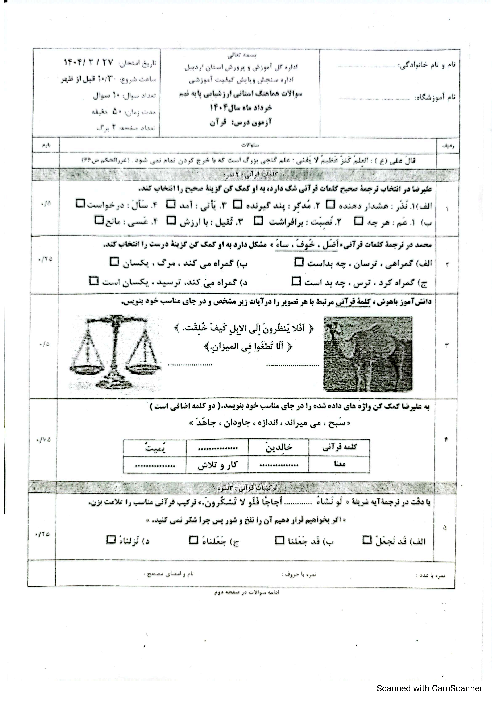 بسمه تعالی
نام و نام خانوادگی:
نام آموزشگاه:
اداره کل آموزش و پرورش استان اردبیل
اداره سنجش وپایش کیفیت آموزشی
سوالات هماهنگ استانی ارزشیابی پایه نهم
خرداد ماه سال ۱۴۰۴
آزمون درس: قرآن
تاریخ امتحان: ۱۴۰۴/۲/۲۷
ساعت شروع: ۱۰/۳۰ قبل از ظهر
تعداد سوال: ۱۰ سوال
مدت زمان: ۵۰ دقیقه
تعداد صفحه: ۲ برگ
ردیف سئوالات بارم
قال علی (ع): العِلمُ کَنزٌ عَظیمٌ لا یَفنی: علم گنجی بزرگ است که با خرج کردن تمام نمی شود.
علیرضا در انتخاب ترجمهٔ صحیح کلمات قرآنی شک دارد، به او کمک کن گزینهٔ صحیح را انتخاب کند.
۱ الف) ۱. نُذُر: هشدار دهنده ☐ ۲. مُدَّکِر: پند گیرنده ☐ ۳. یَأتی: آمد ☐ ۴. سَألَ: درخواست ☐ ۰/۵
ب) ۱. عَمَّ: هر چه ☐ ۲. نُصِبَت: برافراشت ☐ ۳. ثَقیل: با ارزش ☐ ۴. عَسی: مانع ☐
محمد در ترجمهٔ کلمات قرآنی «أضَلَّ ، خَوفٌ ، ساءَ» مشکل دارد به او کمک کن گزینهٔ درست را انتخاب کند.
۲ الف) گمراهی ، ترسان ، چه بداست ☐ ب) گمراه می کند ، مرگ ، یکسان ☐ ۰/۲۵
ج) گمراه کرد ، ترس ، چه بد است ☐ د) گمراه می کند، ترسید ، یکسان است ☐
دانش‌آموز باهوش ، کلمهٔ قرآنی مرتبط با هر تصویر را درآیات زیر مشخص و در جای مناسب خود بنویس.
۳ ﴿ أفَلا یَنظُرونَ إلَی الإبِلِ کَیفَ خُلِقَت. ﴾ ۰/۵
﴿ ألّا تَطغَوا فِی المیزانِ. ﴾
.............. ..............
به علیرضا کمک کن واژه های داده شده را در جای مناسب خود بنویسد. ( دو کلمه اضافی است )
« سَبَح ، می میراند ، اندازه ، جاودان ، جاهَدَ »
۴ کلمه قرآنی خالدین .............. یُمیتُ
معنا .............. کار و تلاش ..............
با دقّت در ترجمهٔ آیه شریفهٔ « لَو نَشاءُ ............ اُجاجًا فَلَو لا تَشکُرونَ.» ترکیب قرآنی مناسب را علامت بزن.
« اگر بخواهیم قرار دهیم آن را تلخ و شور پس چرا شکر نمی کنید. »
۵ الف) قَد نَجعَلُ ☐ ب) قَد جَعَلنا ☐ ج) جَعَلناهُ ☐ د) نَزَلناهُ ☐ ۰/۲۵
نمره با عدد: نمره با حروف: نام و امضای مصحح:
ادامه سوالات در صفحه دوم
Scanned with CamScanner